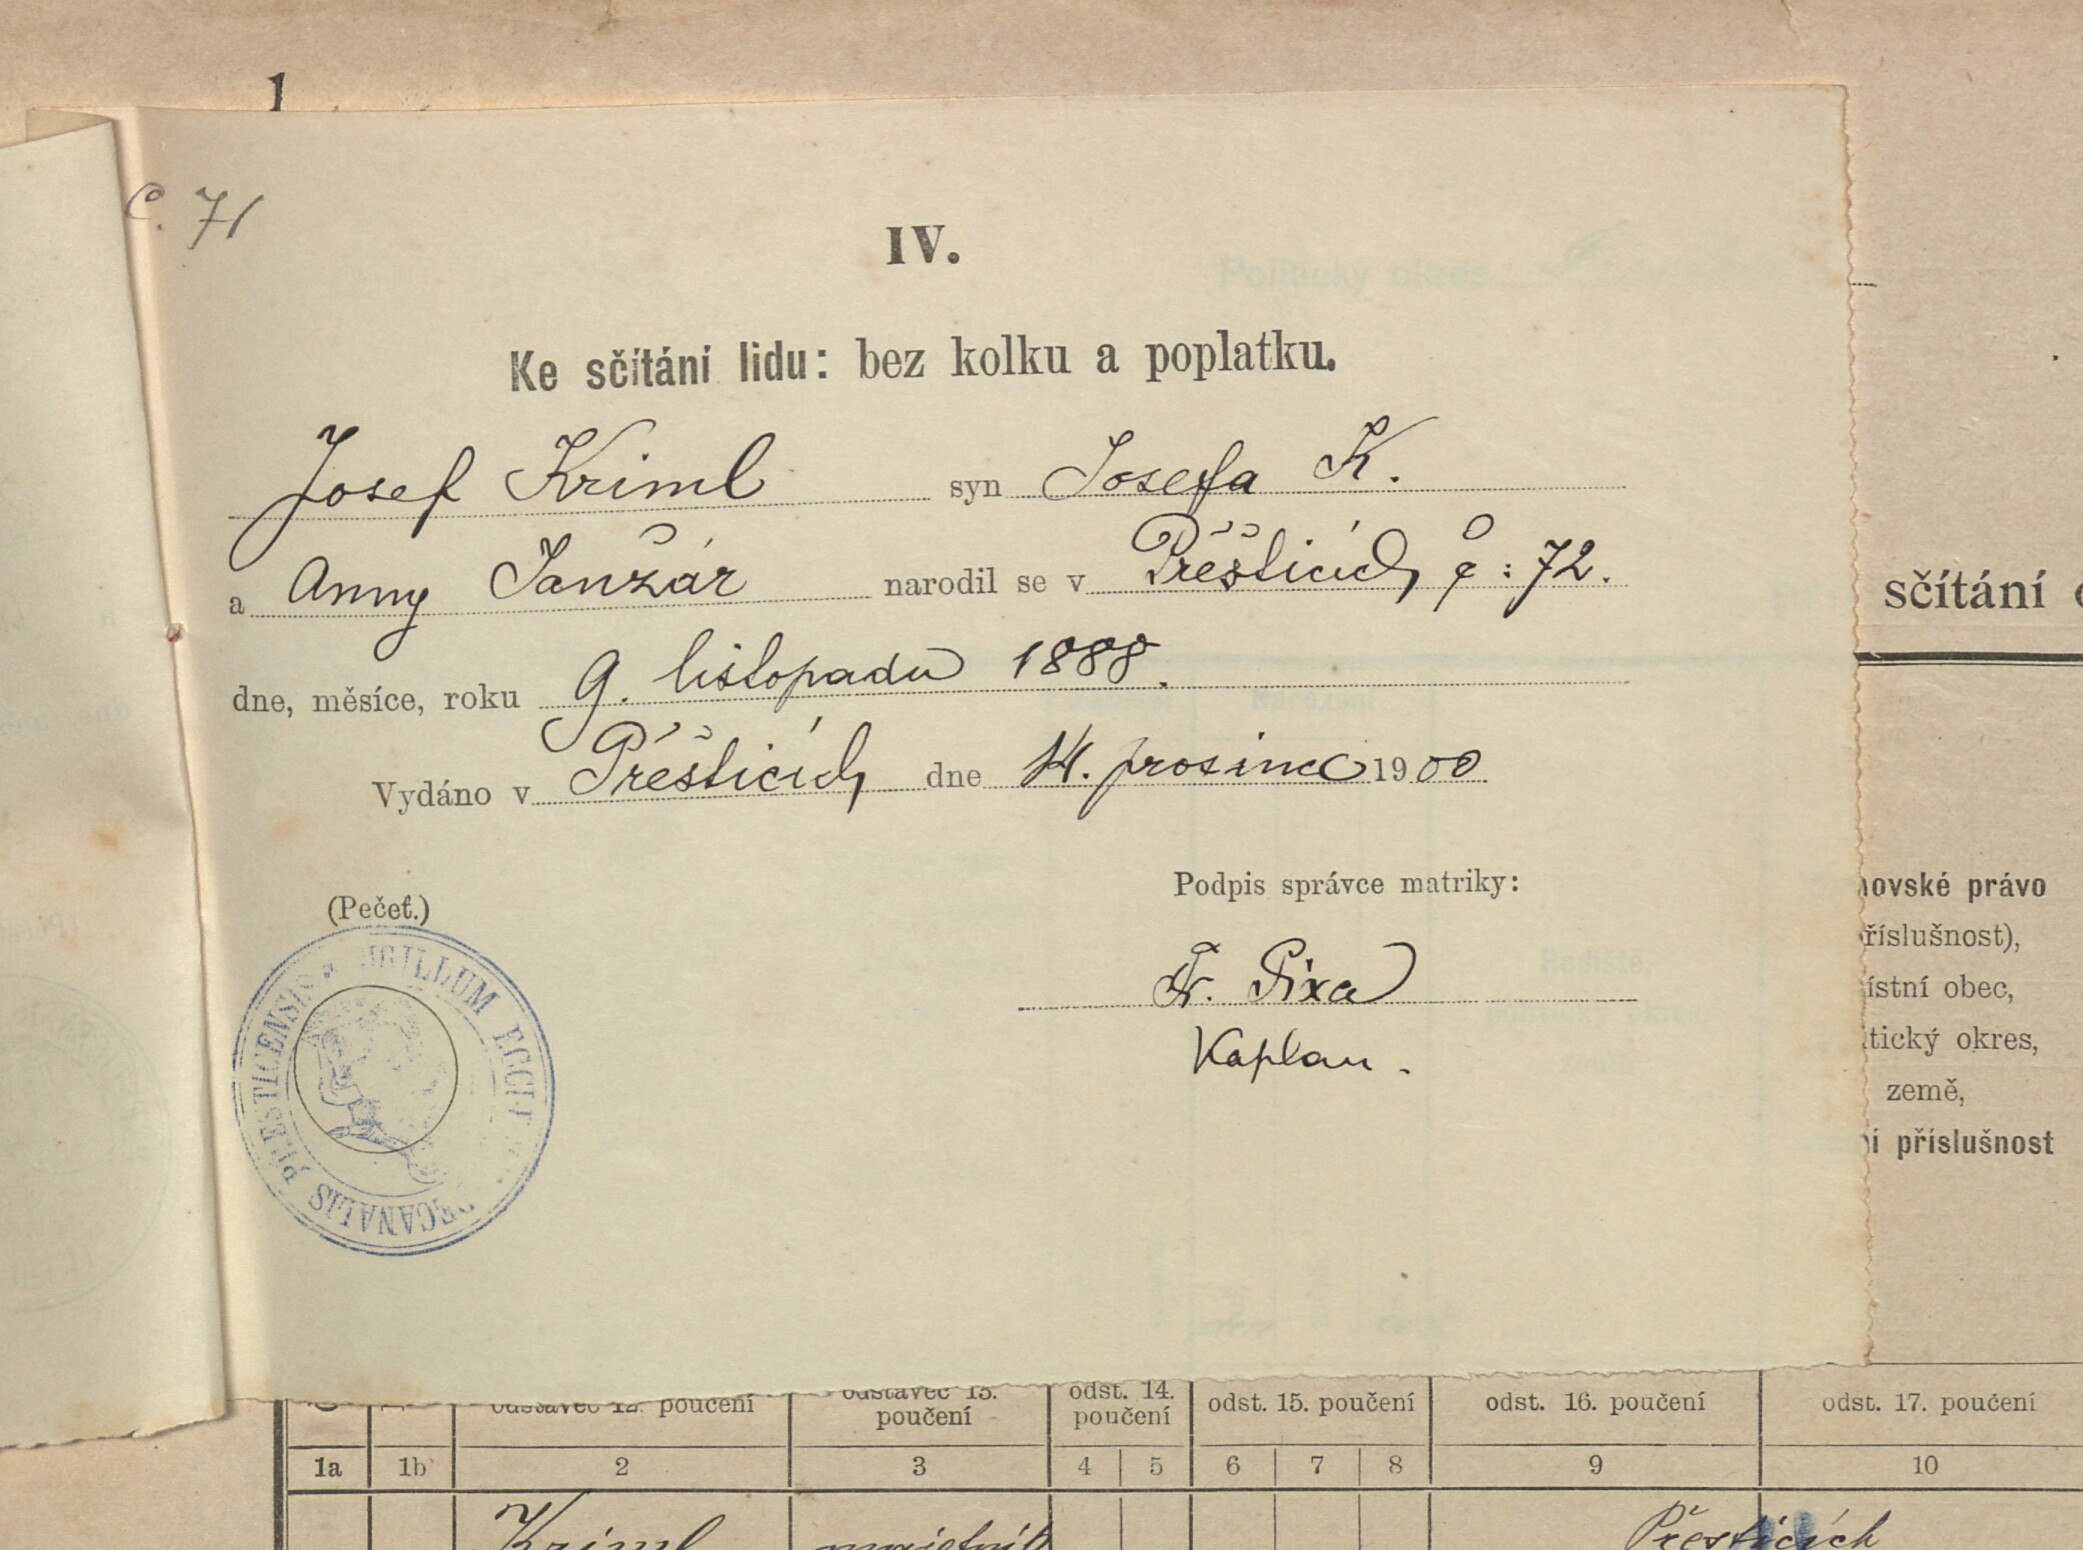 č. 71
IV.
Ke sčítání lidu: bez kolku a poplatku.
Josef Kriml syn Josefa K.
a Anny Janžár narodil se v Přešticích č: 72.
dne, měsíce, roku 9. listopadu 1888.
Vydáno v Přešticích dne 14. prosince 1900
Podpis správce matriky:
(Pečeť.)
Fr. Pixa
Kaplan.
SIGILLUM ECCL DECANALIS PŘESTICENSIS
sčítání
právo
příslušnost),
místní obec,
politický okres,
země,
příslušnost
odstavec 12. poučení
odstavec 13. poučení
odst. 14. poučení
odst. 15. poučení
odst. 16. poučení
odst. 17. poučení
1a 1b 2 3 4 5 6 7 8 9 10
Kriml Přesticích